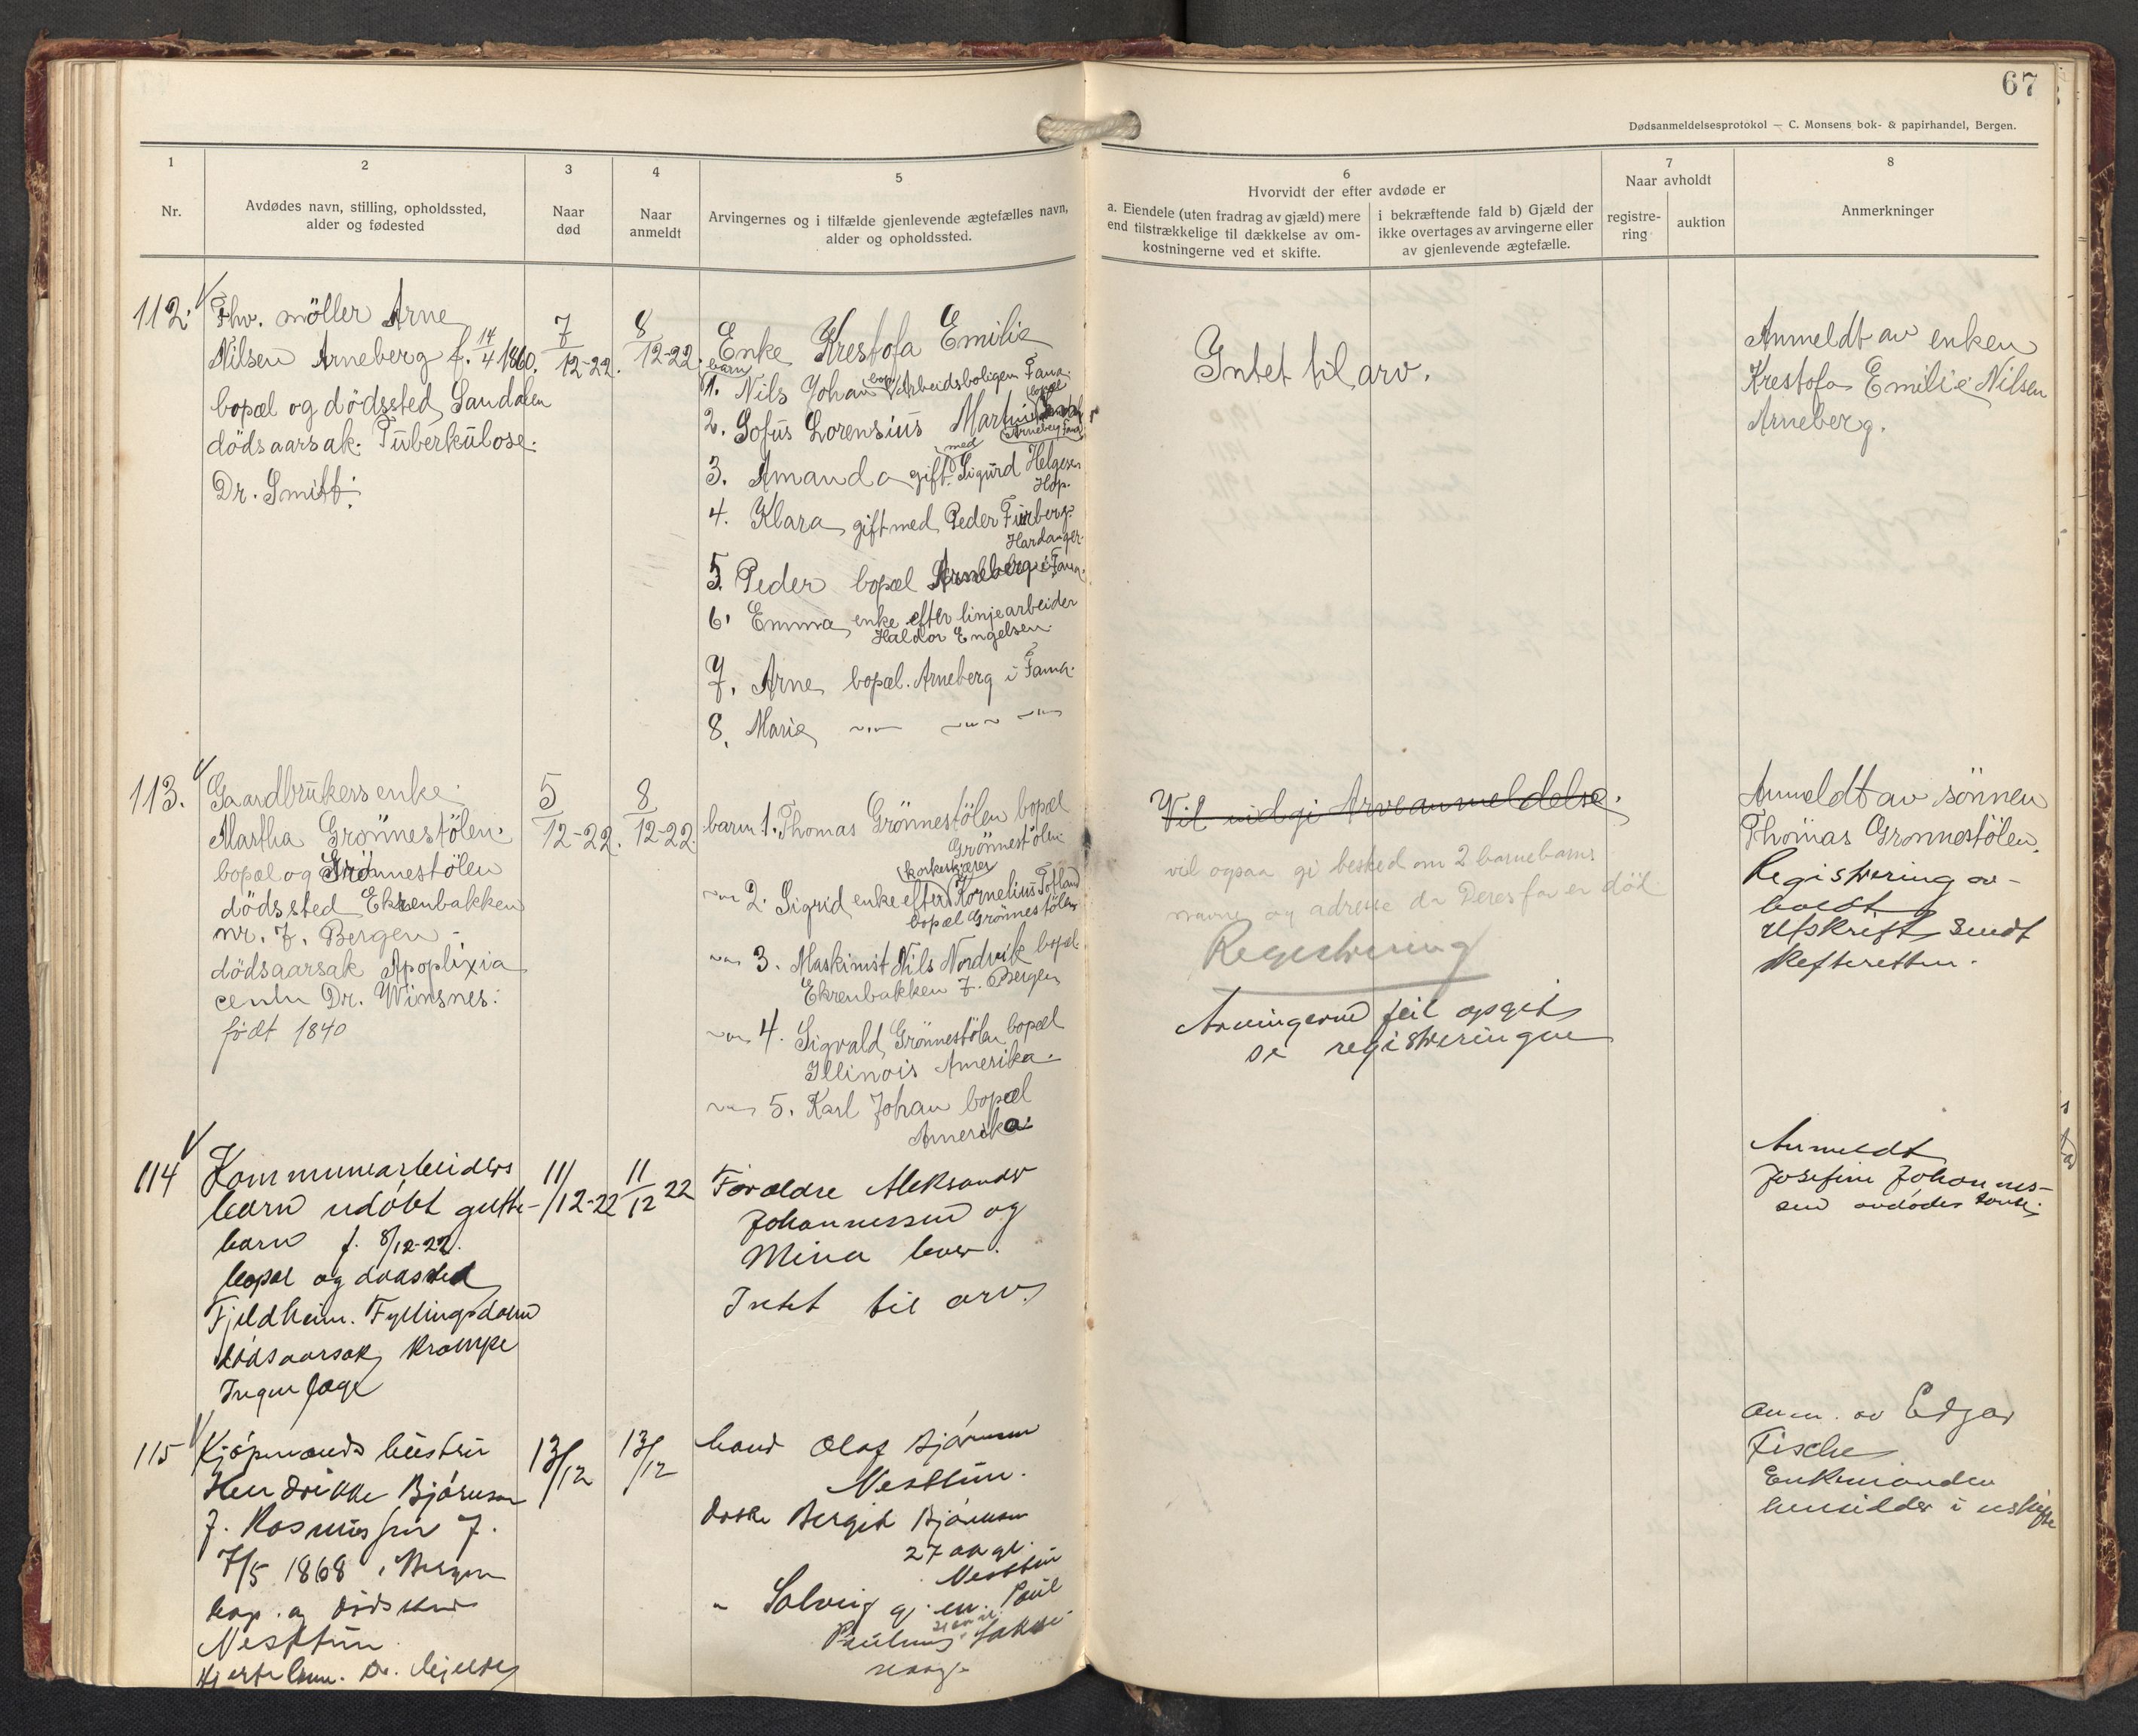 67
Dødsanmeldelsesprotokol — C. Monsens bok- & papirhandel, Bergen.
1
Nr.
2
Avdødes navn, stilling, opholdssted,
alder og fødested
3
Naar
død
4
Naar
anmeldt
5
Arvingernes og i tilfælde gjenlevende ægtefælles navn,
alder og opholdssted.
6
Hvorvidt der efter avdøde er
a. Eiendele (uten fradrag av gjæld) mere
end tilstrækkelige til dækkelse av om-
kostningerne ved et skifte.
i bekræftende fald b) Gjæld der
ikke overtages av arvingerne eller
av gjenlevende ægtefælle.
7
Naar avholdt
registre-
ring
auktion
8
Anmerkninger
112.
Fhv. möller Arne
Nilsen Arneberg f. 14/4 1860.
bopæl og dödssted Sandalen
dödsaarsak: Tuberkulose.
Dr. Smitt.
7/12-22.
8/12-22.
Enke Krestofa Emilie
barn
1. Nils Johan bop. Arbeidsboligen Fana.
2. Sofus Lorensius Martin bopæl
Arneberg Fana
3. Amanda gift med Sigurd Helgesen
Hop.
4. Klara gift med Peder Furberg.
Hardanger.
5. Peder bopæl Arneberg i Fana.
6. Emma enke efter linjearbeider
Haldor Engelsen.
7. Arne bopæl. Arneberg i Fana.
8. Marie
Intet til arv.
Anmeldt av enken
Krestofa Emilie Nilsen
Arneberg.
113.
Gaardbrukersenke
Martha Grönnestölen.
bopæl og Grönnestölen
dödssted Ekrenbakken
nr. 7. Bergen
dödsaarsak Apoplixia
Dr. Winsnes.
födt 1840
5/12-22.
8/12-22.
barn 1. Thomas Grönnestölen bopæl
Grönnestölen.
korkeskjærer
2. Sigrid enke efter Kornelius Totland
bopæl Grönnestölen
3. Maskinist Nils Nordvik bopæl
Ekrenbakken 7. Bergen
4. Sigvald Grönnestölen bopæl
Illinois Amerika.
5. Karl Johan bopæl
Amerika.
Vil indgi Arveanmeldelse.
vil ogsaa gi besked om 2 barnebarns
navne og adresse da Deres far er död.
Registrering
Arvingerne feil opgit
se registreringen
Anmeldt av sönnen
Thomas Grønnestölen.
Registrering av-
holdt
Utskrift sendt
skifteretten.
114
Kommunearbeiders
barn udöbt gutte-
barn f. 8/12-22.
bopæl og dødssted
Fjeldheim. Fyllingsdalen
dödsaarsak krampe
Ingen læge
11/12-22
11/12 22
Forældre Aleksander
Johannessen og
Mina
Intet til arv.
Anmeldt
Josefine Johannes-
sen avdødes tante.
115
Kjøpmands hustru
Hendrikke Bjørnson
f. Rasmussen f.
7/5 1868 i Bergen
bop. og dødssted
Nesttun
13/12
13/12
Olaf Bjørnson
Nesttun.
Bergit Bjørnson
27 aar gl.
Nesttun
" Solveig gj. m. Paul
Anm. av Edgar
Fischer
Enkemanden
hensidder i uskifte